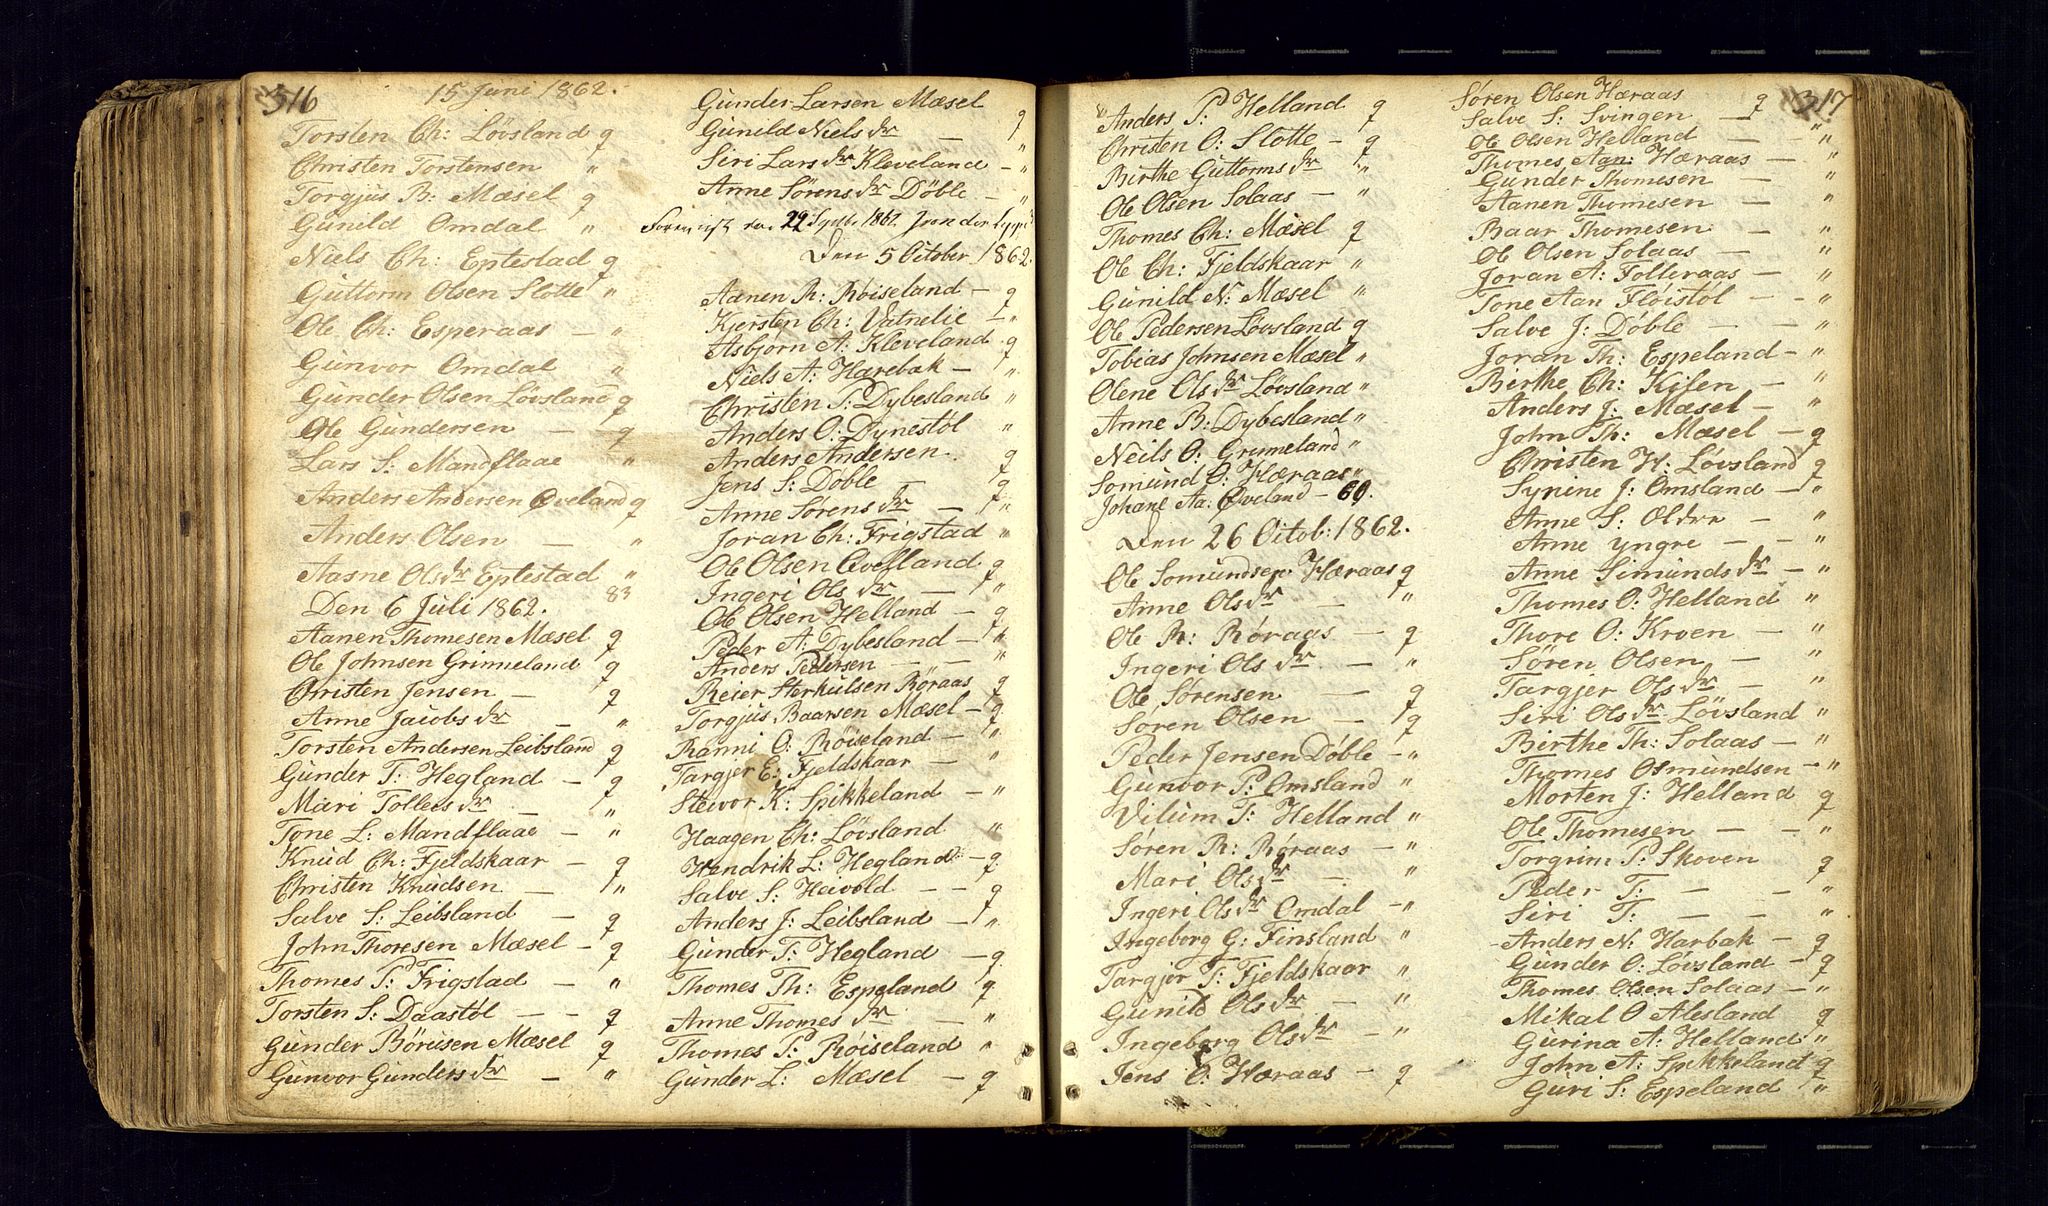 316
15 Juni 1862.
Torsten Ch: Løvsland g
Christen Torstensen "
Torgjus B: Mæsel g
Gunild Omdal "
Niels Ch: Eptestad g
Guttorm Olsen Slotte "
Ole Ch: Esperaas — "
Gunvor Omdal "
Gunder Olsen Løvsland g
Ole Gundersen — g
Lars S: Mandflaae "
Anders Andersen Øveland g
Anders Olsen — "
Aasne Olsdr Eptestad "
Den 6 Juli 1862. 83
Aanen Thomesen Mæsel g
Ole Johnsen Grimeland g
Christen Jensen — g
Anne Jacobsdr — "
Torsten Andersen Leibsland g
Gunder T: Hegland — g
Mari Tollevsdr — "
Tone L: Mandflaae — "
Knud Ch: Fjeldskaar — g
Christen Knudsen — "
Salve S: Leibsland — g
John Thoresen Mæsel — g
Thomes P: Frigstad — "
Torsten S: Daastøl — — g
Gunder Børusen Mæsel g
Gunvor Gundersdr — "
Gunder Larsen Mæsel g
Gunild Nielsdr — "
Siri Larsdr Kleveland — "
Anne Sørensdr Døble — "
29 1862
Den 5 October 1862.
Aanen R: Røiseland — g
Kjersten Ch: Vatnelie — "
Asbjørn A: Kleveland g
Niels A: Harebak — "
Christen P: Dybesland "
Anders O: Dynestøl "
Anders Andersen g
Jens S: Døble — g
Anne Sørensdr — "
Joran Ch: Frigstad "
Ole Olsen Øvefland g
Ingeri Olsdr — "
Ole Olsen Helland — g
Peder A: Dybesland — "
Anders Pedersen — — "
Reier Sterkulsen Røraas g
Torgjus Baarsen Mæsel — g
Ranni O: Røiseland — "
Targjer E: Fjeldskaar — "
Steivor K: Spikkeland — "
Haagen Ch: Løvsland "
Hendrik L: Hegland — g
Salve S: Havold — — g
Anders J: Leibsland — "
Gunder T: Hegland — g
Thomes Th: Espeland g
Anne Thomesdr — "
Thomes P: Røiseland "
Gunder L: Mæsel — g
Anders P: Helland g
Christen O: Slotte — g
Birthe Guttormsdr "
Ole Olsen Solaas — "
Thomes Ch: Mæsel g
Ole Ch: Fjeldskaar "
Gunild N: Mæsel "
Ole Pedersen Løvsland g
Tobias Johnsen Mæsel "
Olene Olsdr Løvsland "
Anne B: Dybesland "
Neils O: Grimeland "
Somund O: Hæraas "
Johane Aa: Øveland — 60.
Den 26 Octob: 1862.
Ole Somundsen Hæraas g
Anne Olsdr — "
Ole R: Røraas — g
Ingeri Olsdr — "
Ole Sørensen — g
Søren Olsen — g
Peder Jensen Døble — "
Gunvor P: Omsland "
Vilum T: Helland "
Søren R: Røraas — "
Mari Olsdr — "
Ingeri Olsdr Omdal — "
Ingeborg G: Finsland "
Targjer T: Fjeldskaar "
Gunild Olsdr — "
Ingeborg Olsdr — "
Jens O: Hæraas — g
317
Søren Olsen Hæraas g
Salve S: Svingen — "
Ole Olsen Helland — — "
Thomes Aan: Hæraas — "
Gunder Thomesen — "
Aanen Thomesen — "
Baar Thomesen — "
Ole Olsen Solaas — "
Joran A: Folleraas — "
Tone Aan Fløistøl — - "
Salve J: Døble — — "
Joran Th: Espeland — "
Birthe Ch: Kisen — "
Anders J: Mæsel — "
John Th: Mæsel — g
Christen W: Løvsland g
Synine J: Omsland — "
Anne S: Ældre — "
Anne yngre — — "
Anne Simundsdr — "
Thomes O: Helland "
Thore O: Kroen — "
Søren Olsen — "
Targjer Olsdr — "
Siri Olsdr Løvsland "
Birthe Th: Solaas — "
Thomes Osmundsen — "
Morten J: Helland g
Ole Thomesen — — "
Torgrim P: Skoven g
Peder T: — — "
Siri T: — — "
Anders N: Harbak — g
Gunder O: Løvsland — g
Thomes Olsen Solaas — "
Mikal O Alesland g
Gurina A: Helland "
John A: Spikkeland g
Guri S: Espeland "